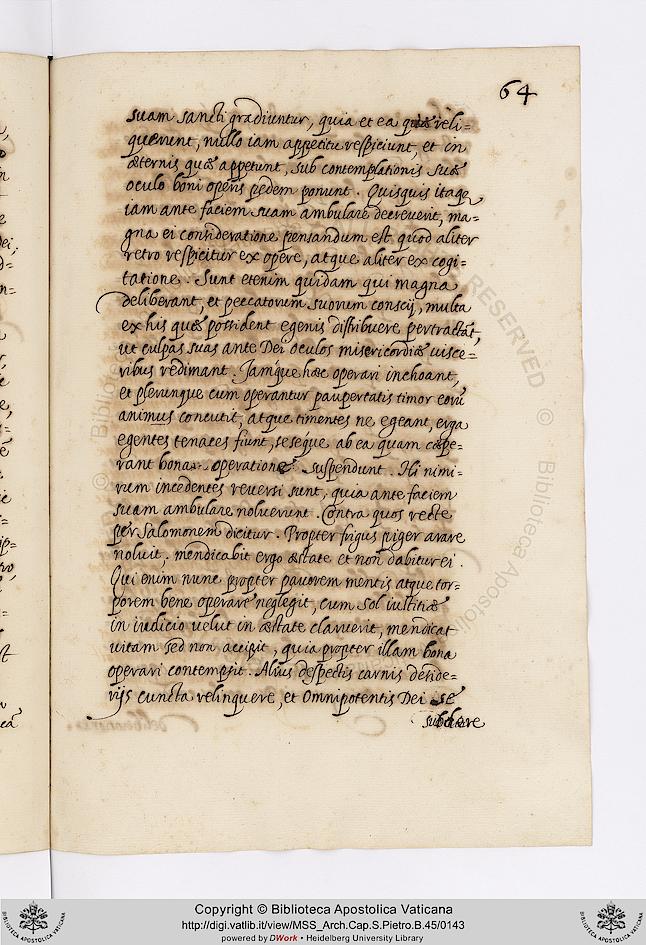 64
suam sancti gradiuntur, quia et ea quæ reli-
querunt, nullo iam appetitu respiciunt, et in
æternis quæ appetunt, sub contemplationis suæ
oculo boni operis pedem ponunt. Quisquis itaqe
iam ante faciem suam ambulare decreverit, ma=
gna ei consideratione pensandum est quod aliter
retro respicitur ex opere, atque aliter ex cogi=
tatione. Sunt etenim quidam qui magna
deliberant, et peccatorum suorum conscij, multa
ex his quæ possident egenis distribuere pertractãt,
ut culpas suas ante Dei oculos misericordiæ visce=
ribus redimant. Jamque hæc operari inchoant,
et plerunque cum operantur paupertatis timor eorũ
animus concutit, atque timentes ne egeant, erga
egentes tenaces fiunt, seseque ab ea quam cœpe=
rant bona operatione suspendunt. Hi nimi=
rum incedentes reversi sunt, quia ante faciem
suam ambulare noluerunt. Contra quos recte
per Salomonem dicitur. Propter frigus piger arare
noluit, mendicabit ergo æstate et non dabitur ei.
Qui enim nunc propter pavorem mentis atque tor=
porem bene operare neglegit, cum sol iustitiæ
in iudicio velut in æstate claruerit, mendicat
vitam sed non accipit, quia propter illam bona
operari contempsit. Alius despectis carnis deside=
rijs cuncta relinquere, et Omnipotentis Dei se
subdere
Copyright © Biblioteca Apostolica Vaticana
http://digi.vatlib.it/view/MSS_Arch.Cap.S.Pietro.B.45/0143
powered by DWork • Heidelberg University Library